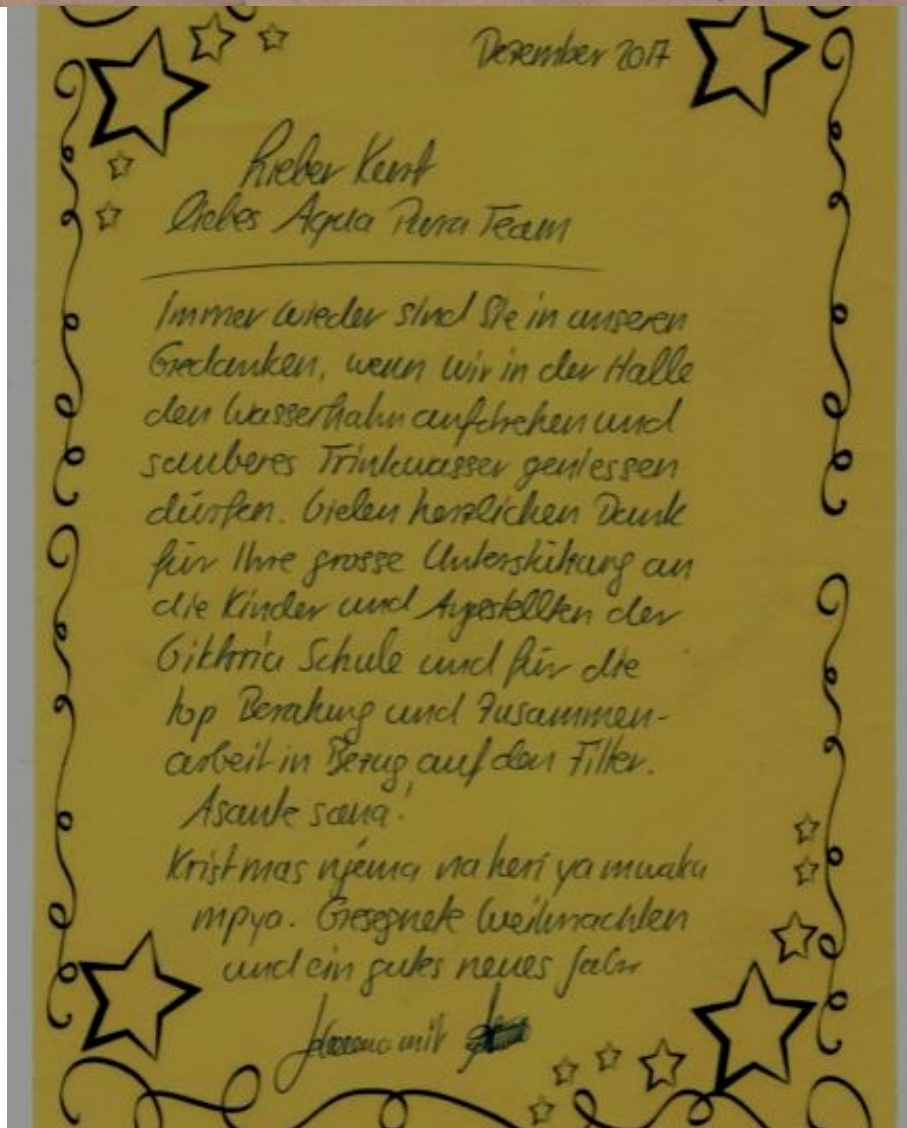 Dezember 2017
Lieber Kurt
liebes Aqua Pura Team
Immer wieder sind Sie in unseren
Gedanken, wenn wir in der Halle
den Wasserhahn aufdrehen und
sauberes Trinkwasser geniessen
dürfen. Vielen herzlichen Dank
für Ihre grosse Unterstützung an
die Kinder und Angestellten der
Viktoria Schule und für die
top Beratung und Zusammen-
arbeit in Bezug auf den Filter.
Asante sana!
Kristmas njema na heri ya mwaka
mpya. Gesegnete Weihnachten
und ein gutes neues Jahr
mit